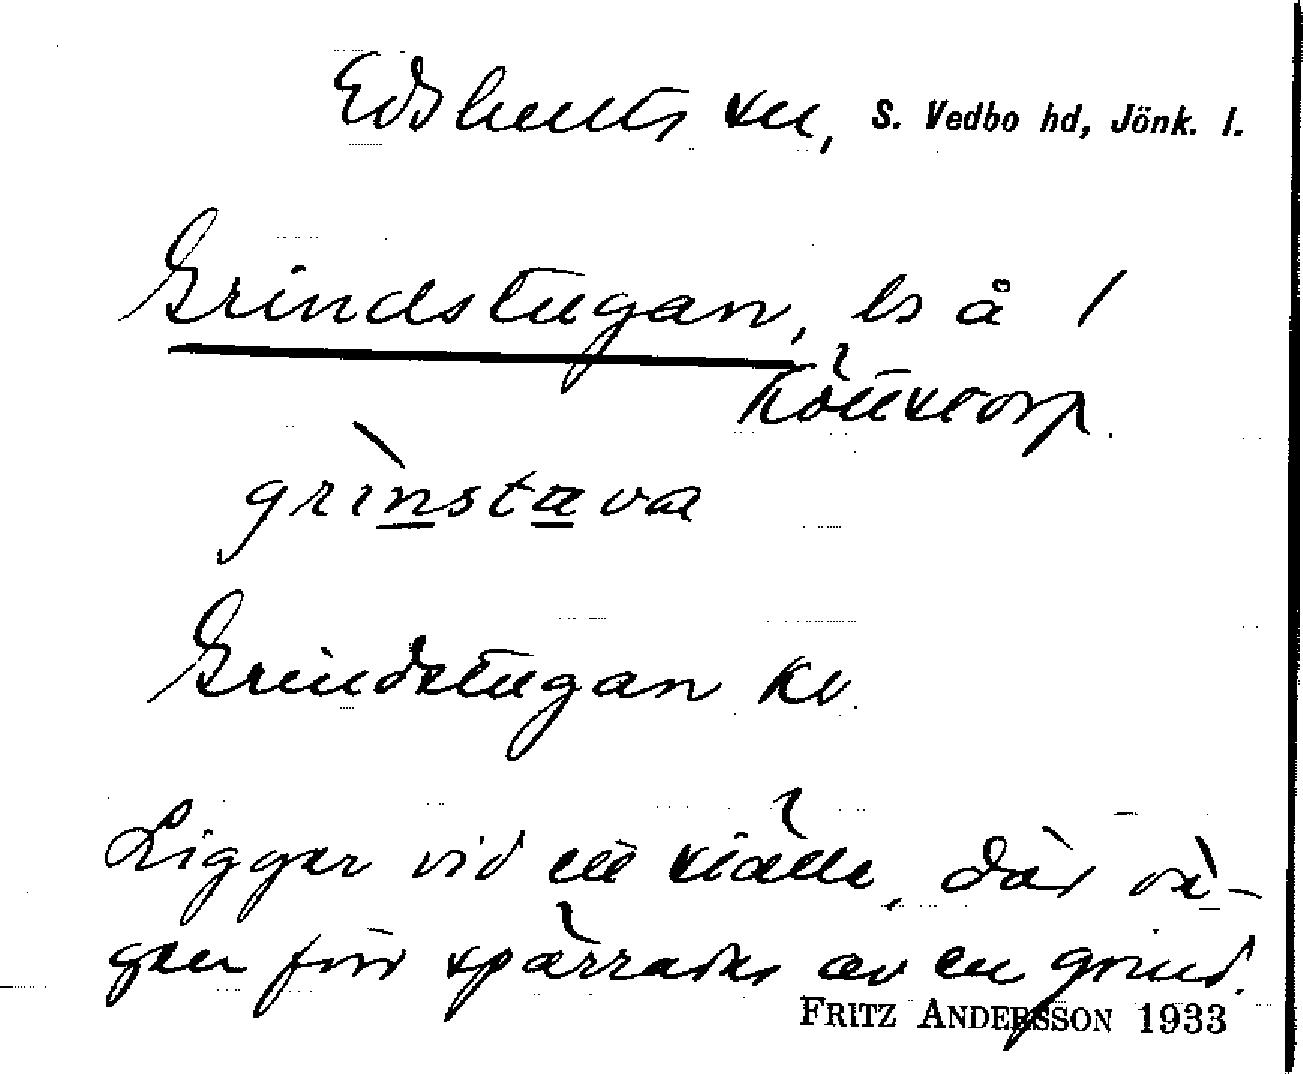 Edshults sn, S. Vedbo hd, Jönk. l.
Grindstugan, ls å 1
Köttstorp.
grinstuva
Grindstugan Kv
Ligger vid ett ställe, där vä-
gen förr spärrades av en grind.
FRITZ ANDERSSON 1933